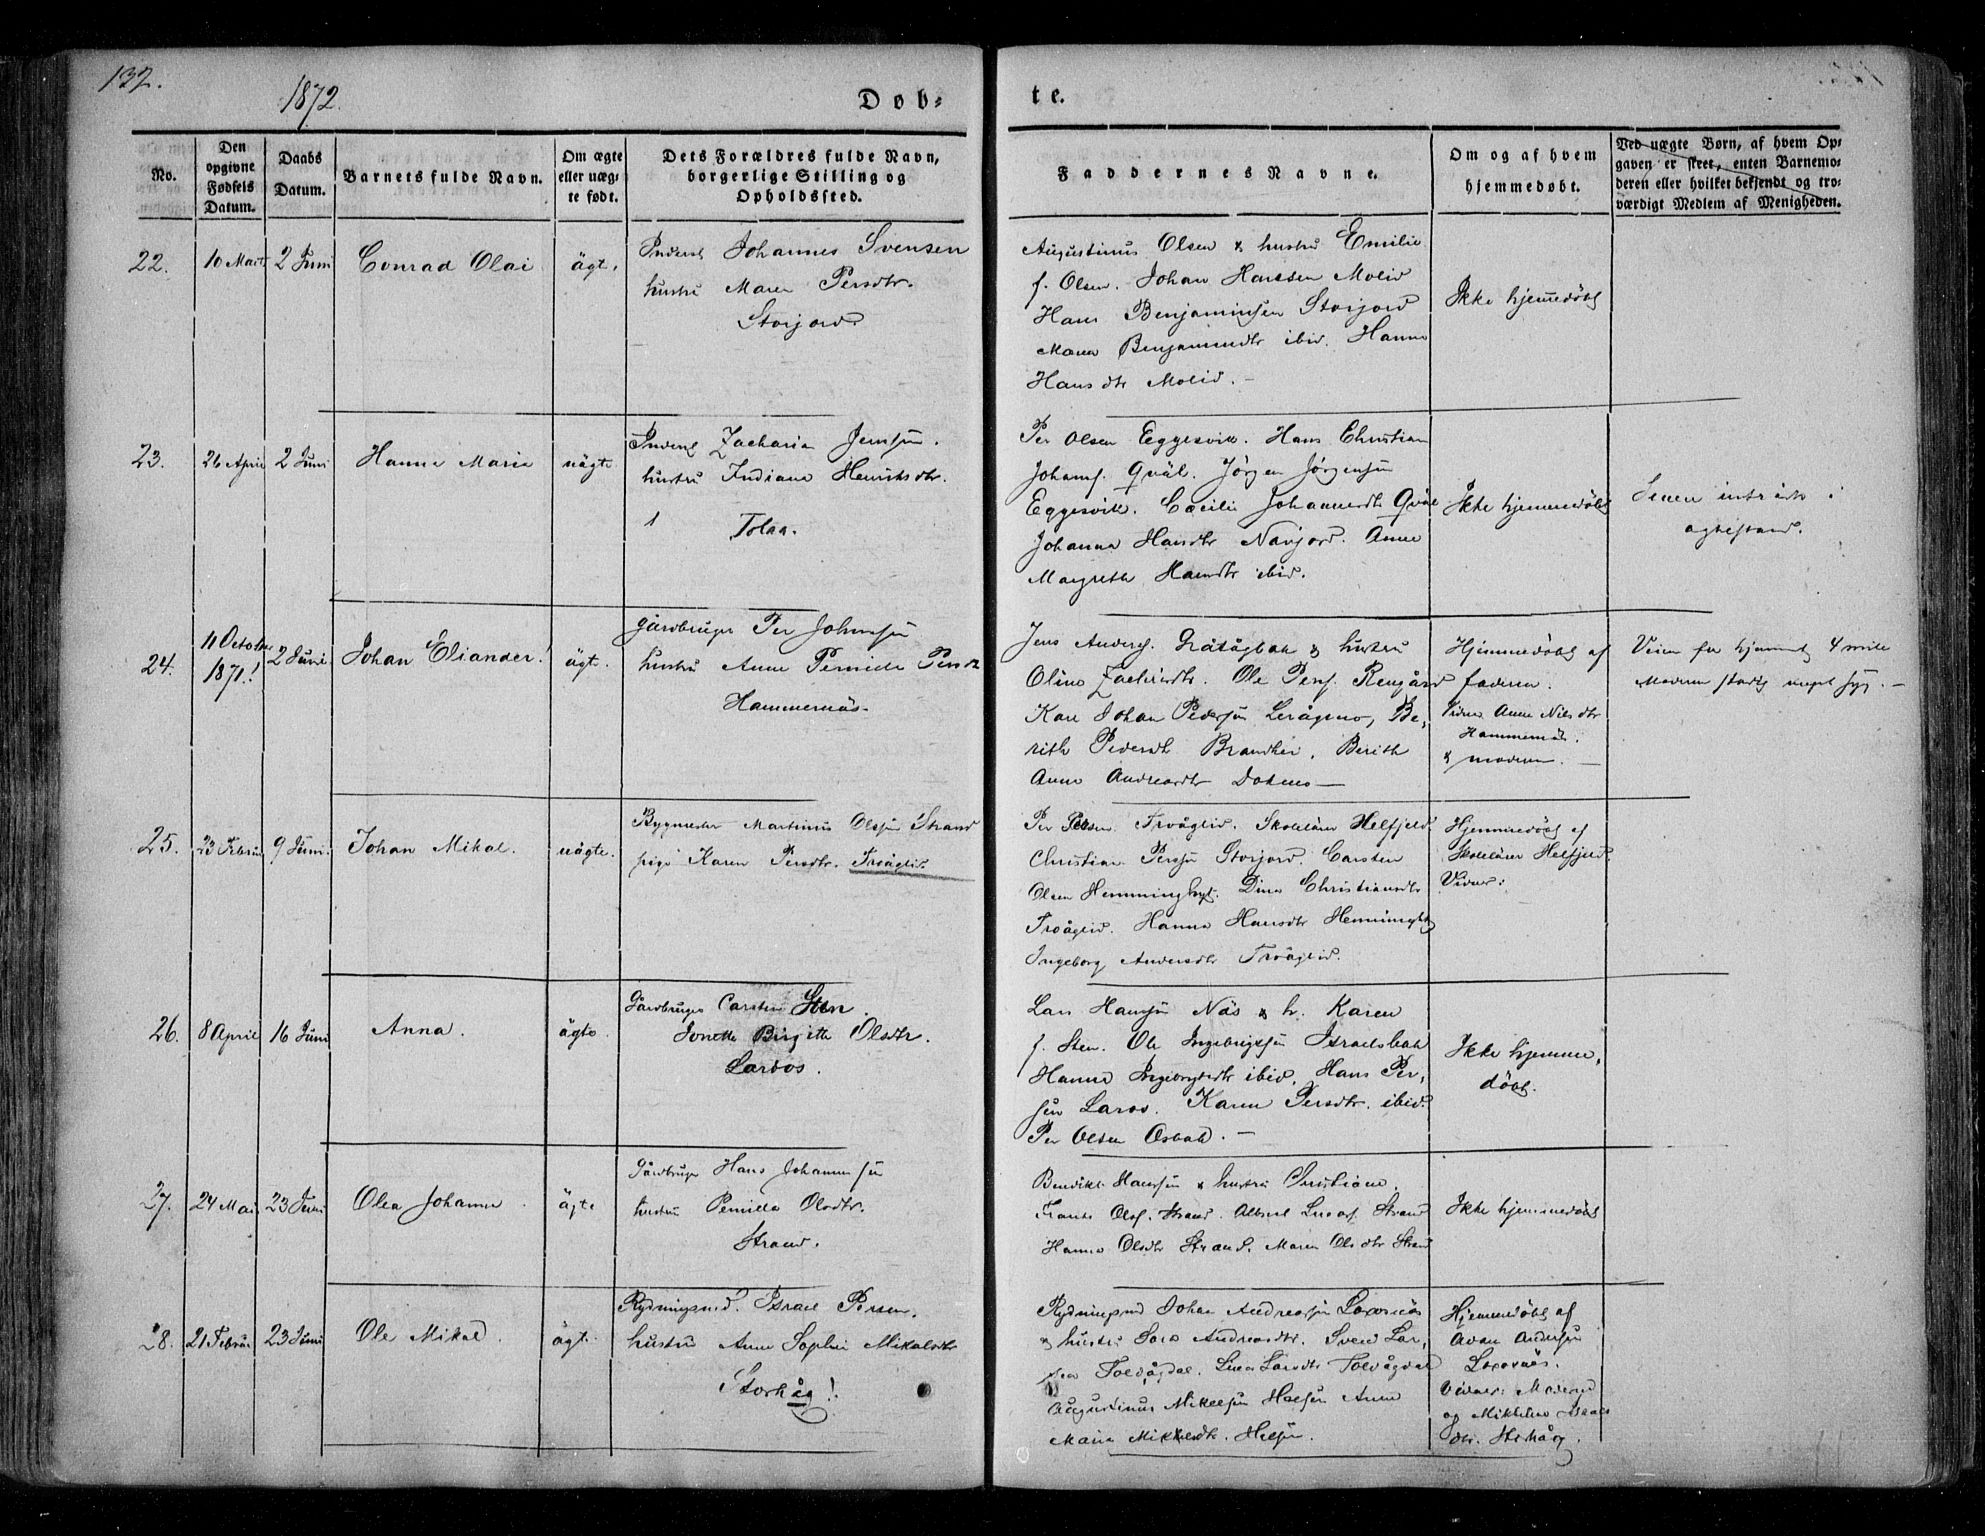 137.
1872.
Døb-
te.
No.
Den opgivne Fødsels Datum.
Daabs Datum.
Barnets fulde Navn.
Om ægte eller uæg-te født.
Dets Forældres fulde Navn, borgerlige Stilling og Opholdssted.
Faddernes Navne.
Om og af hvem hjemmedøbt.
Ved uægte Børn, af hvem Op-
gaven er skeet, enten Barnemo-
deren eller hvilket bekjendt og tro-
værdigt Medlem af Menigheden.
22.
10 Marts
2 Juni
Conrad Olai
ägt.
Inderst Johannes Svensen
hustru Maren Persdtr.
Storjord.
Augustinus Olsen & hustru Emilie
f. Olsen. Johan Hanssen Molid
Hans Benjaminsen Storjord
Maren Benjamindtr ibid. Hanna
Hansdtr Molid. —
Ikke hjemmedöbt
23.
26 April
2 Juni
Hanna Maria
uägte
Inderst Zacharia Jenssen.
hustru Indiana Henriksdtr.
Tolaa.
Per Olsen Eggesvik. Hans Christian
Johans. Qväl. Jörgen Jörgensen
Eggesvik. Cæcilie Johannesdtr Qväl
Johanna Hansdtr Navjord. Anne
Margrethe Hansdtr ibid.
Ikke hjemmedöbt
Senere inträdt i
ægtestand.
24.
11 October
1871!
2 Juni
Johan Eliander!
ägt.
gårdbruger Per Johnsen
hustru Anne Pernille Persdtr
Hammernäs.
Jens Anders. Gråtågbak & hustru
Oline Zachrisdtr. Ole Pers. Rengård
Karl Johan Pedersen Leråmo, Be-
rith Pedersdtr Brandlien. Berith
Anne Andreasdtr Dokmo —
Hjemmedöbt af
faderen.
Vidner Anne Nilsdtr
Hammernäs.
& moderen. —
Veien fra hjemmet 4 mile
Moderen stadig meget syg. —
25.
23 Februar
9 Juni.
Johan Mikal.
uägte.
Bygmester Martinus Olssen Strand
pige Karen Persdtr. Troåglid.
Per Olsen Troåglid. Skolelärer Helfjeld.
Christian Perssen Storjord. Carsten
Olsen Hemminghyt. Dina Christiansdtr
Troåglid. Hanna Hansdtr Hemminghyt
Ingeborg Andersdtr Troåglid.
Hjemmedöbt af
Skolelärer Helfjeld.
Vidner:
26.
8 April
16 Juni
Anna.
ägte.
Gårdbruger Carsten Sten.
Jonette Birgitte Olsdtr.
Larsos.
Lars Hanssen Näs & h. Karen
f. Sten. Ole Ingebrigtsen Israelsbak
Hanna Ingebrigtsdtr ibid. Hans Per-
sen Larso. Karen Persdtr. ibid.
Per Olsen Osbak. —
Ikke hjemme-
döbt.
27.
24 Mai
23 Juni
Olea Johanna.
ägte
Gårdbruger Hans Johannessen
hustru Pernille Olsdtr.
Strand.
Benedikt Hanssen & hustru Christiane.
Frants Ols. Strand. Albriet Lucas. Strand
Hanna Olsdtr Strand. Maren Olsdtr Strand
Ikke hjemmedöbt
28.
21 Februar
23 Juni
Ole Mikal.
ägt.
Rydningsmd. Israel Persen.
hustru Anne Sophie Mikalsdtr
Storhåg!
Rydningsmd Johan Andreassen Laxesnäs
& hustru Sara Andreasdtr. Svend Lar-
sen Tolvågdal. Lucia Larsdtr Tolvågdal
Augustinus Mikelsen Helsen Anne
Maria Mikkelsdtr. Helsen.
Hjemmedöbt af
Avan Andersen
Laxesnäs.
Vidner: Moderen
og Mikkeline Isaks
dtr. Storhåg.